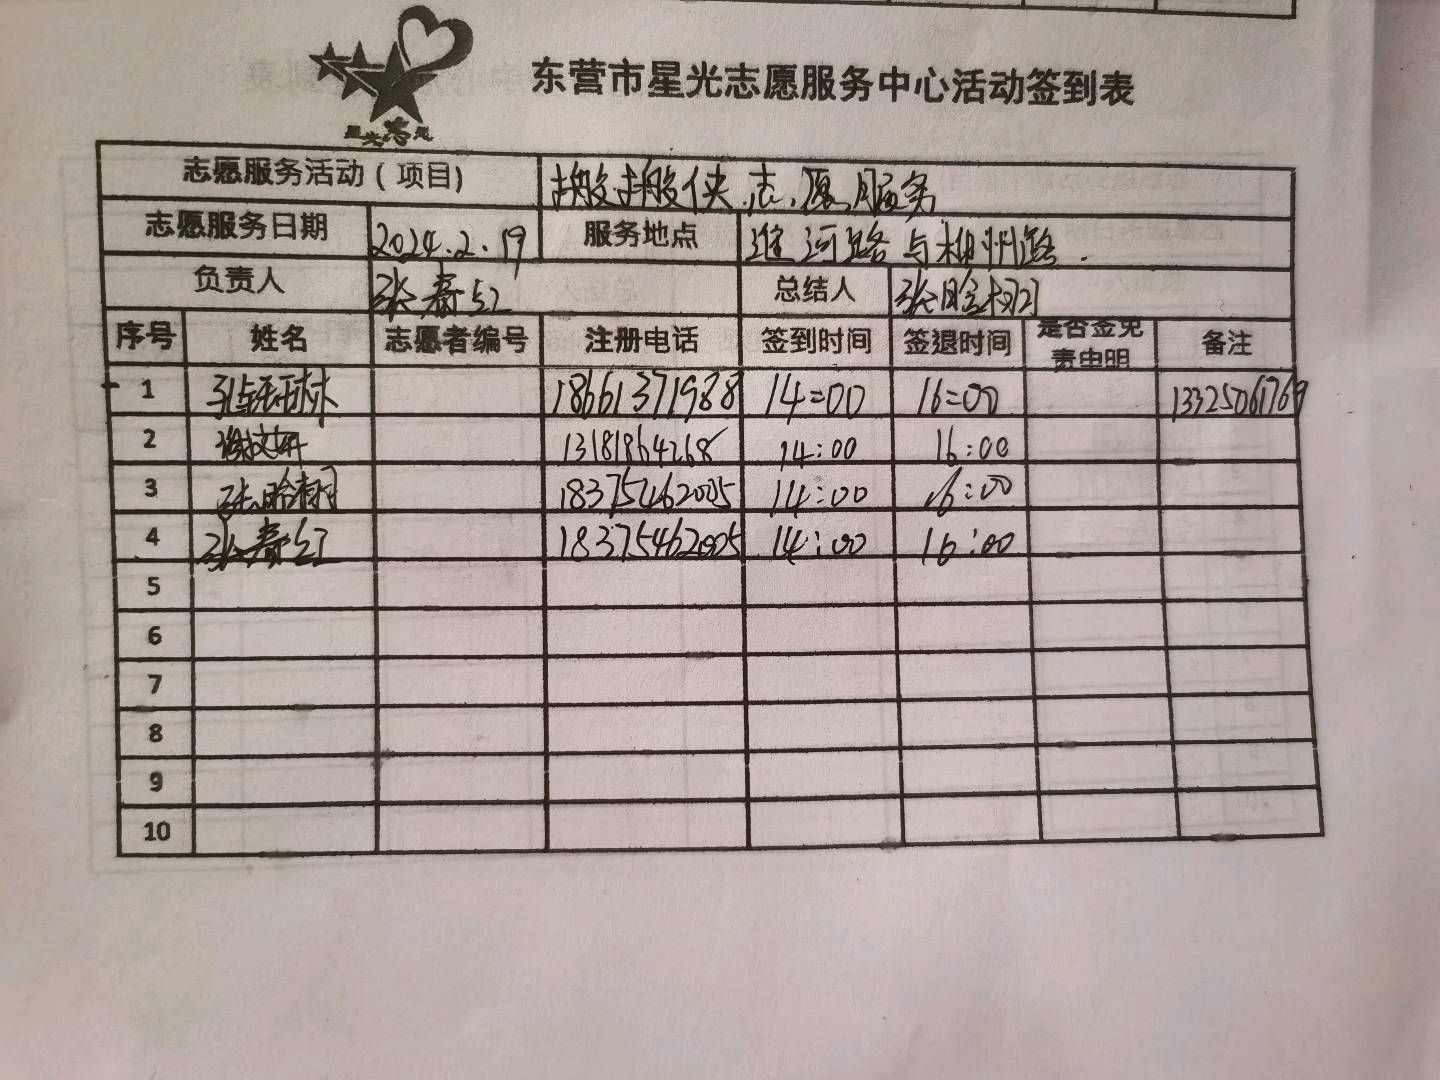 星光志愿
东营市星光志愿服务中心活动签到表
志愿服务活动（项目) 搬搬侠志愿服务
志愿服务日期 2024.2.19 服务地点 淮河路与柳州路.
负责人 张春红 总结人 张晗桐
序号 姓名 志愿者编号 注册电话 签到时间 签退时间 是否签免责申明 备注
1 18661371988 14:00 16:00 13325061769
2 13181864268 14:00 16:00
3 张晗桐 18375462005 14:00 16:00
4 张春红 18375462005 14:00 16:00
5
6
7
8
9
10